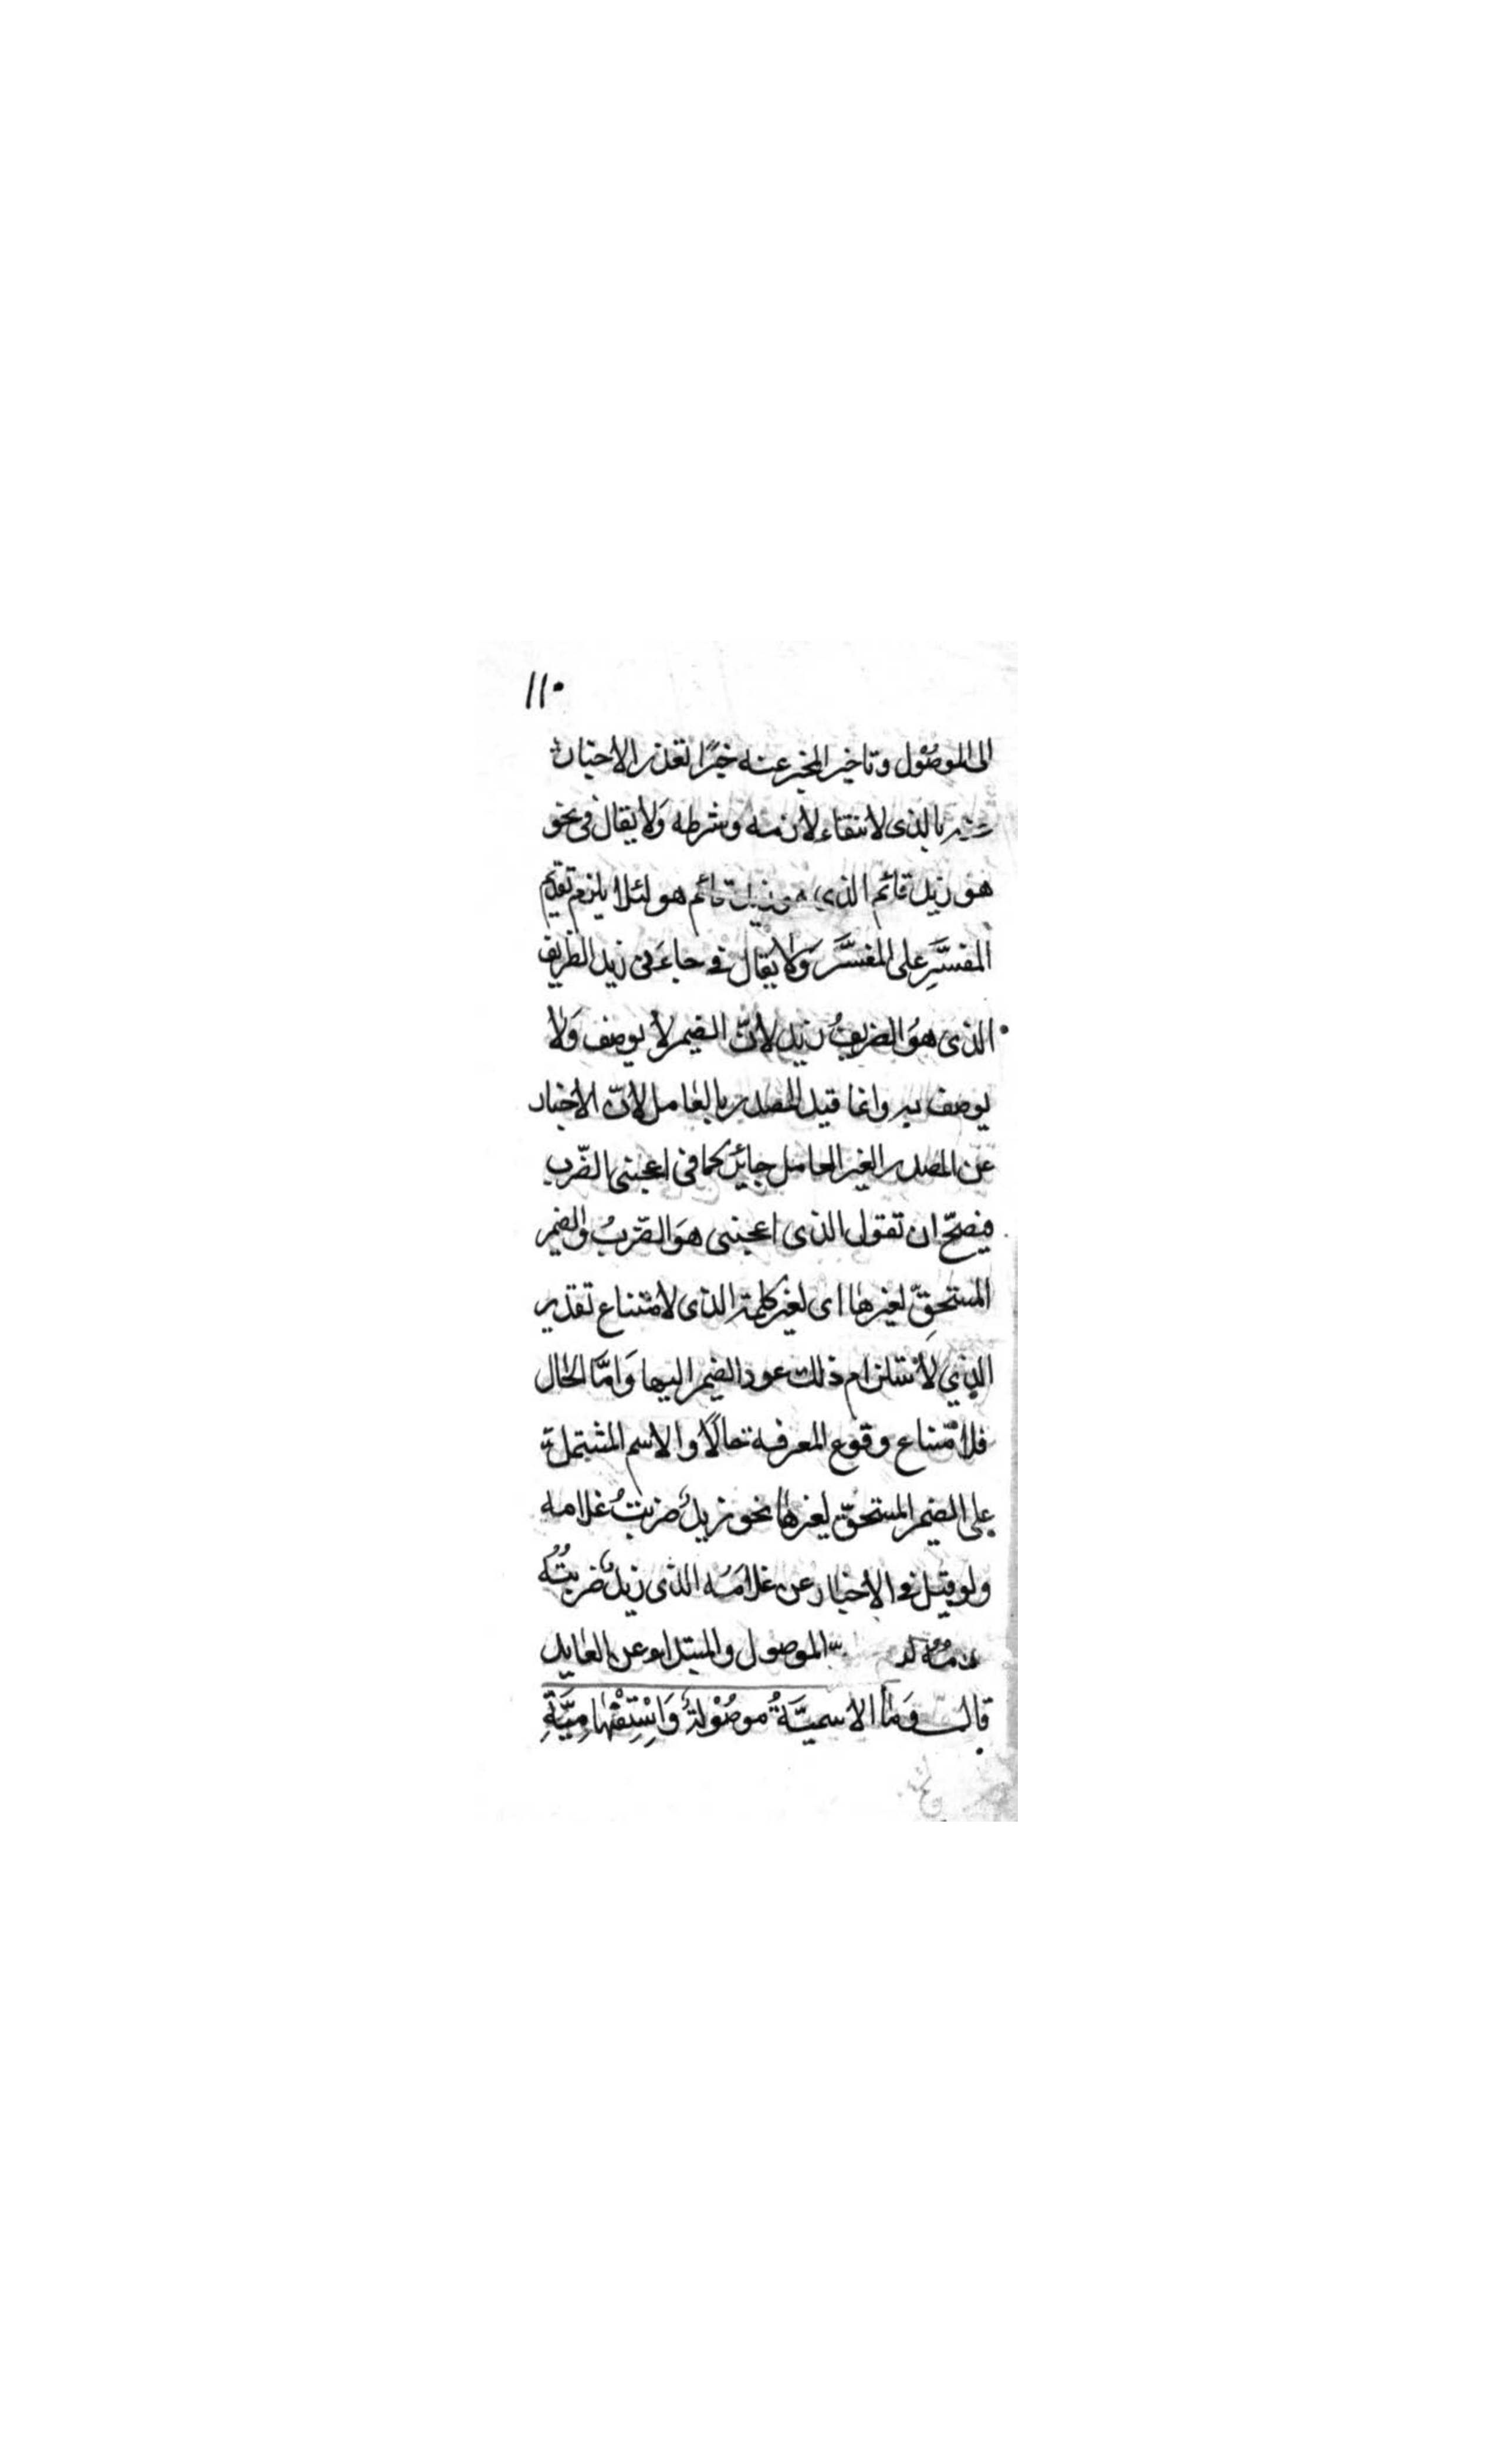 ١١٠
الى الموصُول وتاخير المخبر عنه خبرًا تعذر الاخبار
عنه بالذى لانتفاء لازمه وشرطه وَلا يقال فى نحو
هو زيد قائم الذى هو زيد قائم هو لئلا يلزم تقديم
المفسَّرِ على المفسَّر وَلا يقال فى جاءَنى زيد الظريف
الذى هوَ الظريفُ زيد لانّ الضمير لا يوصف وَلا
يوصف به وانما قيد المصدر بالعامل لانّ الاخبار
عن المصدر الغير العامل جائز كما فى اعجبنى الضّرب
فيصحّ ان تقول الذى اعجبنى هوَ الضّربُ والضمير
المستحقِّ لغيرها اى لغير كلمة الذى لامتناع تقدير
الذي لاستلزام ذلك عود الضمير اليها وَامَّا الحال
فلامتناع وقوع المعرفة حالًا والاسم المشتمل
على الضمير المستحقّ لغيرها نحو زيدٌ ضربتُ غلامه
ولو قيل فى الاخبار عن غلامه الذى زيدٌ ضربتُه
غلامُه الموصول والمبتدا وعن العايد
قال وَما الاسميَّةُ موصُوْلةٌ وَاِسْتِفْهامِيَّةٌ